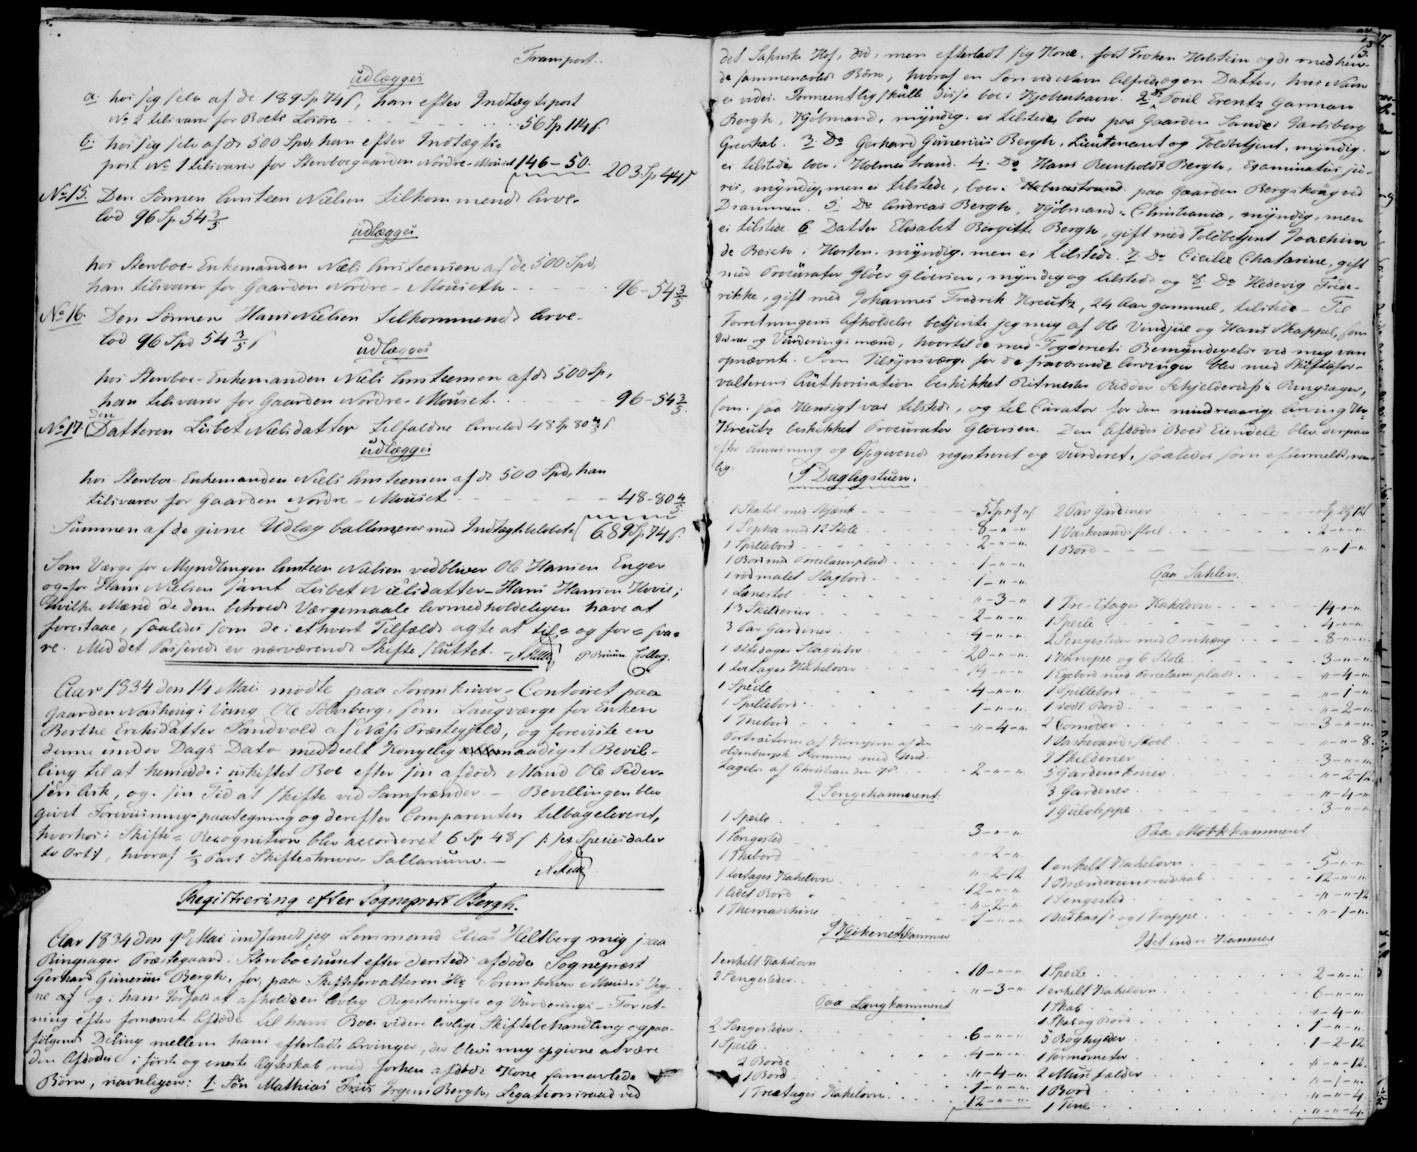 Transport..
udlægges
a. hos sig selv af de 189 Sp 74 ß, han efter Indtægts post
No 2 tilsvarer for Boets Løsøre - - - 56 Sp 114 ß
b. hos sig selv af de 500 Spd, han efter Indtægts-
post No 1 tilsvarer for Stervboegaarden Nordre-Mouset 146 - 50. 203 Sp 44 ß
No 15. Den Sønnen Amsteen Nielsen tilkommende Arve-
lod 96 Sp 54 3/5
udlægges
hos Stervboe-Enkemanden Niels Amsteensen af de 500 Spd,
han tilsvarer for Gaarden Nordre-Mouseth - - - 96 - 54 3/5
No 16. Den Sønnen Hans Nielsen tilkommende Arve-
lod 96 Spd 54 3/5 ß
udlægges
hos Stervboe-Enkemanden Niels Amsteensen af de 500 Sp,
han tilsvarer for Gaarden Nordre-Mouset - - - 96 - 54 3/5
No 17 den Datteren Lisbet Nielsdatter tilfaldne Arvelod 48 Sp 80 4/5 ß
udlægges
hos Stervboe-Enkemanden Niels Amsteensen af de 500 Spd, han
tilsvarer for Gaarden Nordre-Mouset - - - 48 - 80 4/5
Summen af de givne Udlæg ballancerer med Indtægtsbeløbet 689 Sp 74 ß.
Som Værge for Myndlingen Amsteen Nielsen vedbliver Ole Hansen Enger
og for Hans Nielsen samt Lisbet Nielsdatter - Hans Hansen Hovie;
hvilke Mænd de dem betroede Værgemaale lovmedholdeligen have at
forestaae, saaledes som de i ethvert Tilfælde agte at til- og for- sva-
re. Med det Passerede er nærværende Skifte sluttet. -
Aar 1834 den 14 Mai mødte paa Sorenskriver-Contoiret paa
Gaarden i Vang Ole Solberg, som Laugværge for Enken
Berthe Erichsdatter Sandvold af Næs Præstegjeld, og foreviste en
denne under Dags Dato meddeelt Kongelig allernaadigst Bevil-
ling til at hensidde i uskiftet Boe efter sin afdøde Mand Ole Peder-
sen, og i sin Tid at skifte ved Samfrænder. - Bevillingen blev
givet Foreviisnings-paategning og derefter Comparenten tilbageleveret,
hvorhos i Skifte-Recognition blev accorderet 6 Sp 48 ß sex Speciesdaler
to Ort, hvoraf 1/3 Part Skifteskriver Sallarium. -
Registrering efter Sogneprest Bergh.
Aar 1834 den 9de Mai indfandt jeg Lensmand Elias Heltberg mig paa
Ringsager Præstegaard i Stervboehuset efter dersteds afdøde Sogneprest
Gerhard Gunerius Bergh, for, paa Skifteforvalteren Hr Sorenskriver Veg-
ne af og i hans Forfald at afholde en lovlig Registrerings- og Vurderings-Forret-
ning efter fornævnt Afdøde til hans Boes videre lovlige Skiftebehandling og paa-
følgende Deling mellem hans efterladte Arvinger, der bleve mig opgivne at være
den Afdødes i første og eneste Ægteskab med forhen afdøde Kone sammavlede
Børn, navnligen: 1. Søn Mathias Friis Bergh, Legationsraad ved
det Hof, død, men efterladt sig Kone, født Frøken Holstein og de med hen-
de sammenavlede Børn, hvoraf en Søn ved Navn Alfred og en Datter, hvis Navn
ei vides. Formentlig skulle disse boe i Kjøbenhavn. 2 Do Povl Erentz Garman
Bergh, Kjøbmand, myndig, ei tilstede, boer paa Gaarden Sande i Jarlsberg
Grevskab. 3 Do Gerhard Gunerius Bergh, Lieutenant og Toldbetjent, myndig,
ei tilstede, boer i Holmestrand. 4. Do Hans Reinholdt Bergh, Examinatus ju-
ris, myndig, men ei tilstede, boer paa Gaarden Bergskoug ved
Drammen. 5 Do Andreas Bergh, Kjøbmand i Christiania, myndig, men
ei tilstede. 6 Datter Elisabet Birgitte Bergh, gift med Toldbetjent Joachim
de Besche i Horten, myndig, men ei tilstede. 7. Do Cicilie Chatarine, gift
med Procurator Gløer Gløersen, myndig og tilstede og 8. Do Hedevig Frede-
rikke, gift med Johannes Fredrik Kreutz, 24 Aar gammel, tilstede - Til
Forretningens Afholdelse betjente jeg mig af Ole Vindjue og Hans Skappel, som
Vidner og Vurderingsmænd, hvortil de med Fogderiets Bemyndigelse ved mig var
opnævnt. Som Tilsynsværge for de fraværende Arvinger blev med Skiftefor-
valterens Authorisation beskikket Ritmester Ridder Schjelderup i Ringsager,
som saa Hensigt var tilstede, og til Curator for den mindreaarige Arving
Kreutz beskikket Procurator Gløersen. Den Afdødes Boes Eiendele blev derpaa
efter Anviisning og Opgivende registreret og vurderet, saaledes som efterm
lig.
I Dagligstuen.
1 Skatol med Skjænk - - -
1 Sopha med 12 Stole - - - 8 - " - "
1 Spillebord - - - 2 - " - "
1 Bord med Porcelainsplad - - - 1 - " - "
1 rødmalet Slagbord - - - 1 - " - "
1 Lænestol - - - " - 3 - "
13 Skilderier - - - 2 - " - "
3 Par Gardiner - - - 4 - " - "
1 Claveer - - - 20 - " - "
1 Kakelovn - - - 14 - " - "
1 Speile - - - 4 - " - "
1 Spillebord - - - 1 - " - "
1 Theebord - - - " - 4 - "
Portraiterne af Kongerne af den
oldenburgske Stamme med Und-
tagelse af Christian den 7de - - - 2 - " - "
I Sengekammeret
1 Speile - - - 3 - " - "
1 Sengested - - - " - 2 - "
1 Theebord - - - " - 2 - 12
1 Kakelovn - - - 12 - " - "
1 lidet Bord - - - " - 2 - "
1 Themaschine
I Pigekammer
1 enkelt Kakelovn - - - 10 - " - "
2 Sengesteder - - - " - 3 - "
Paa Langkammeret
2 Sengesteder - - - 6 - " - "
1 Speile - - - 4 - " - "
2 Borde - - - " - 4 - "
1 Bord - - - 1 - " - "
1 Treetages Kakelovn - - - 12 - " - "
2 Par Gardiner
1 Vaskevandsstoel - - - 2 - " - "
1 Bord - - - " - 1 - "
Paa Sahlen.
1 Tre-Etages Kakelovn - - - 14 - " - "
1 Speile - - - 4 - " - "
2 Sengesteder med Omhæng - - - 8 - " - "
1 Kanapee og 6 Stole - - - 3 - " - "
1 Egebord med Porcelainsplad - - - " - 4 - "
1 Spillebord - - - " - 1 - "
1 rødt Bord - - - " - 2 - "
2 Comoder - - - 3 - " - "
1 Vaskevandsstoel - - - " - " - 8.
7 Skilderier - - - 3 - " - "
5 Gardinskinner - - - " - 2 - 12
3 Gardiner - - - " - 4 - "
1 Gulvteppe - - - 3 - " - "
Paa Mørkkammeret
1 enkelt Kakelovn - - - 5 - " - "
1 Brænderiinsredskab - - - 12 - " - "
1 Sengested - - - " - " - 12
1 og 1 Trappe - - - " - 1 - "
I det indre Kammer
1 Speile - - - 2 - " - "
1 enkelt Kakelovn - - - 6 - " - "
1 Skab - - - " - 4 - "
1 Skab og Bord - - - 1 - " - "
5 Boghylder - - - 1 - 2 - 12
1 Termometer - - - " - " - 12
2 Muusefælder - - - " - 1 - "
1 Bord - - - " - " - 4
1 Tine - - - " - " - 4.